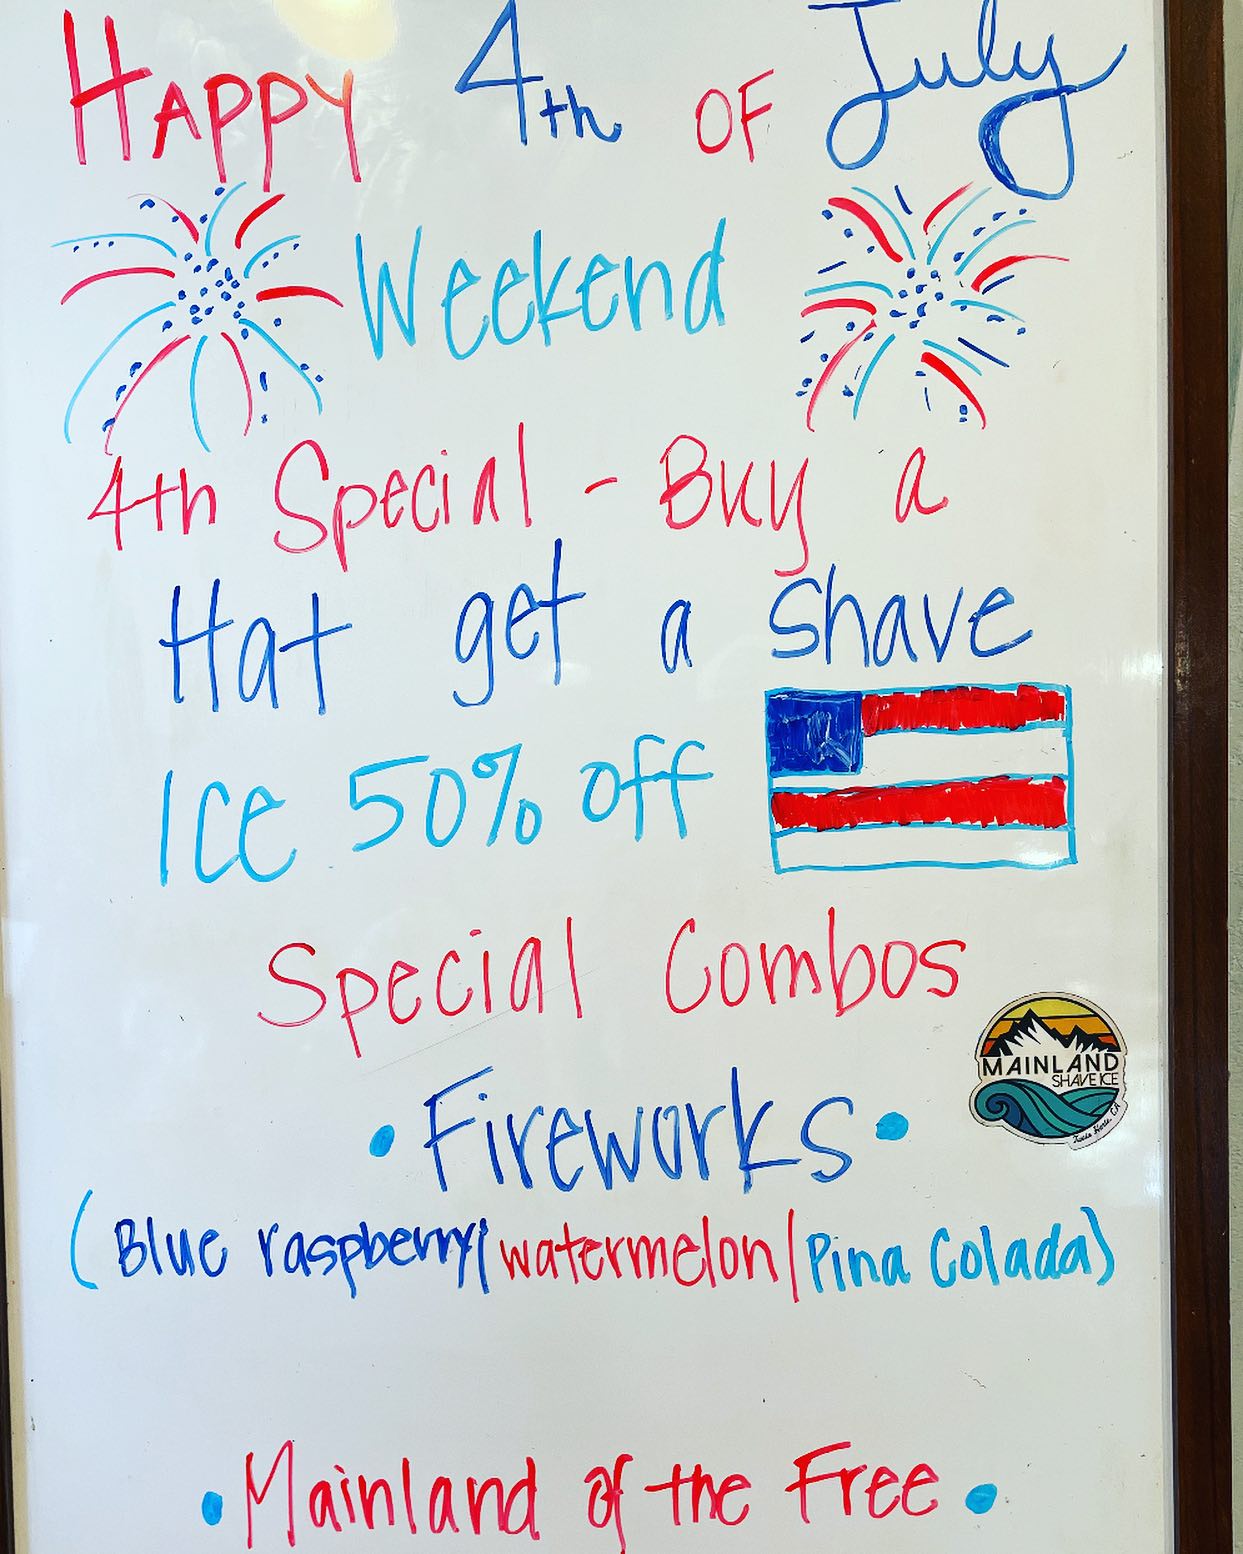 Happy 4th of July
Weekend
4th Special - Buy a
Hat get a shave
Ice 50% off
Special Combos
MAINLAND
SHAVE ICE
• Fireworks •
(Blue raspberry/watermelon/Pina Colada)
• Mainland of the Free •